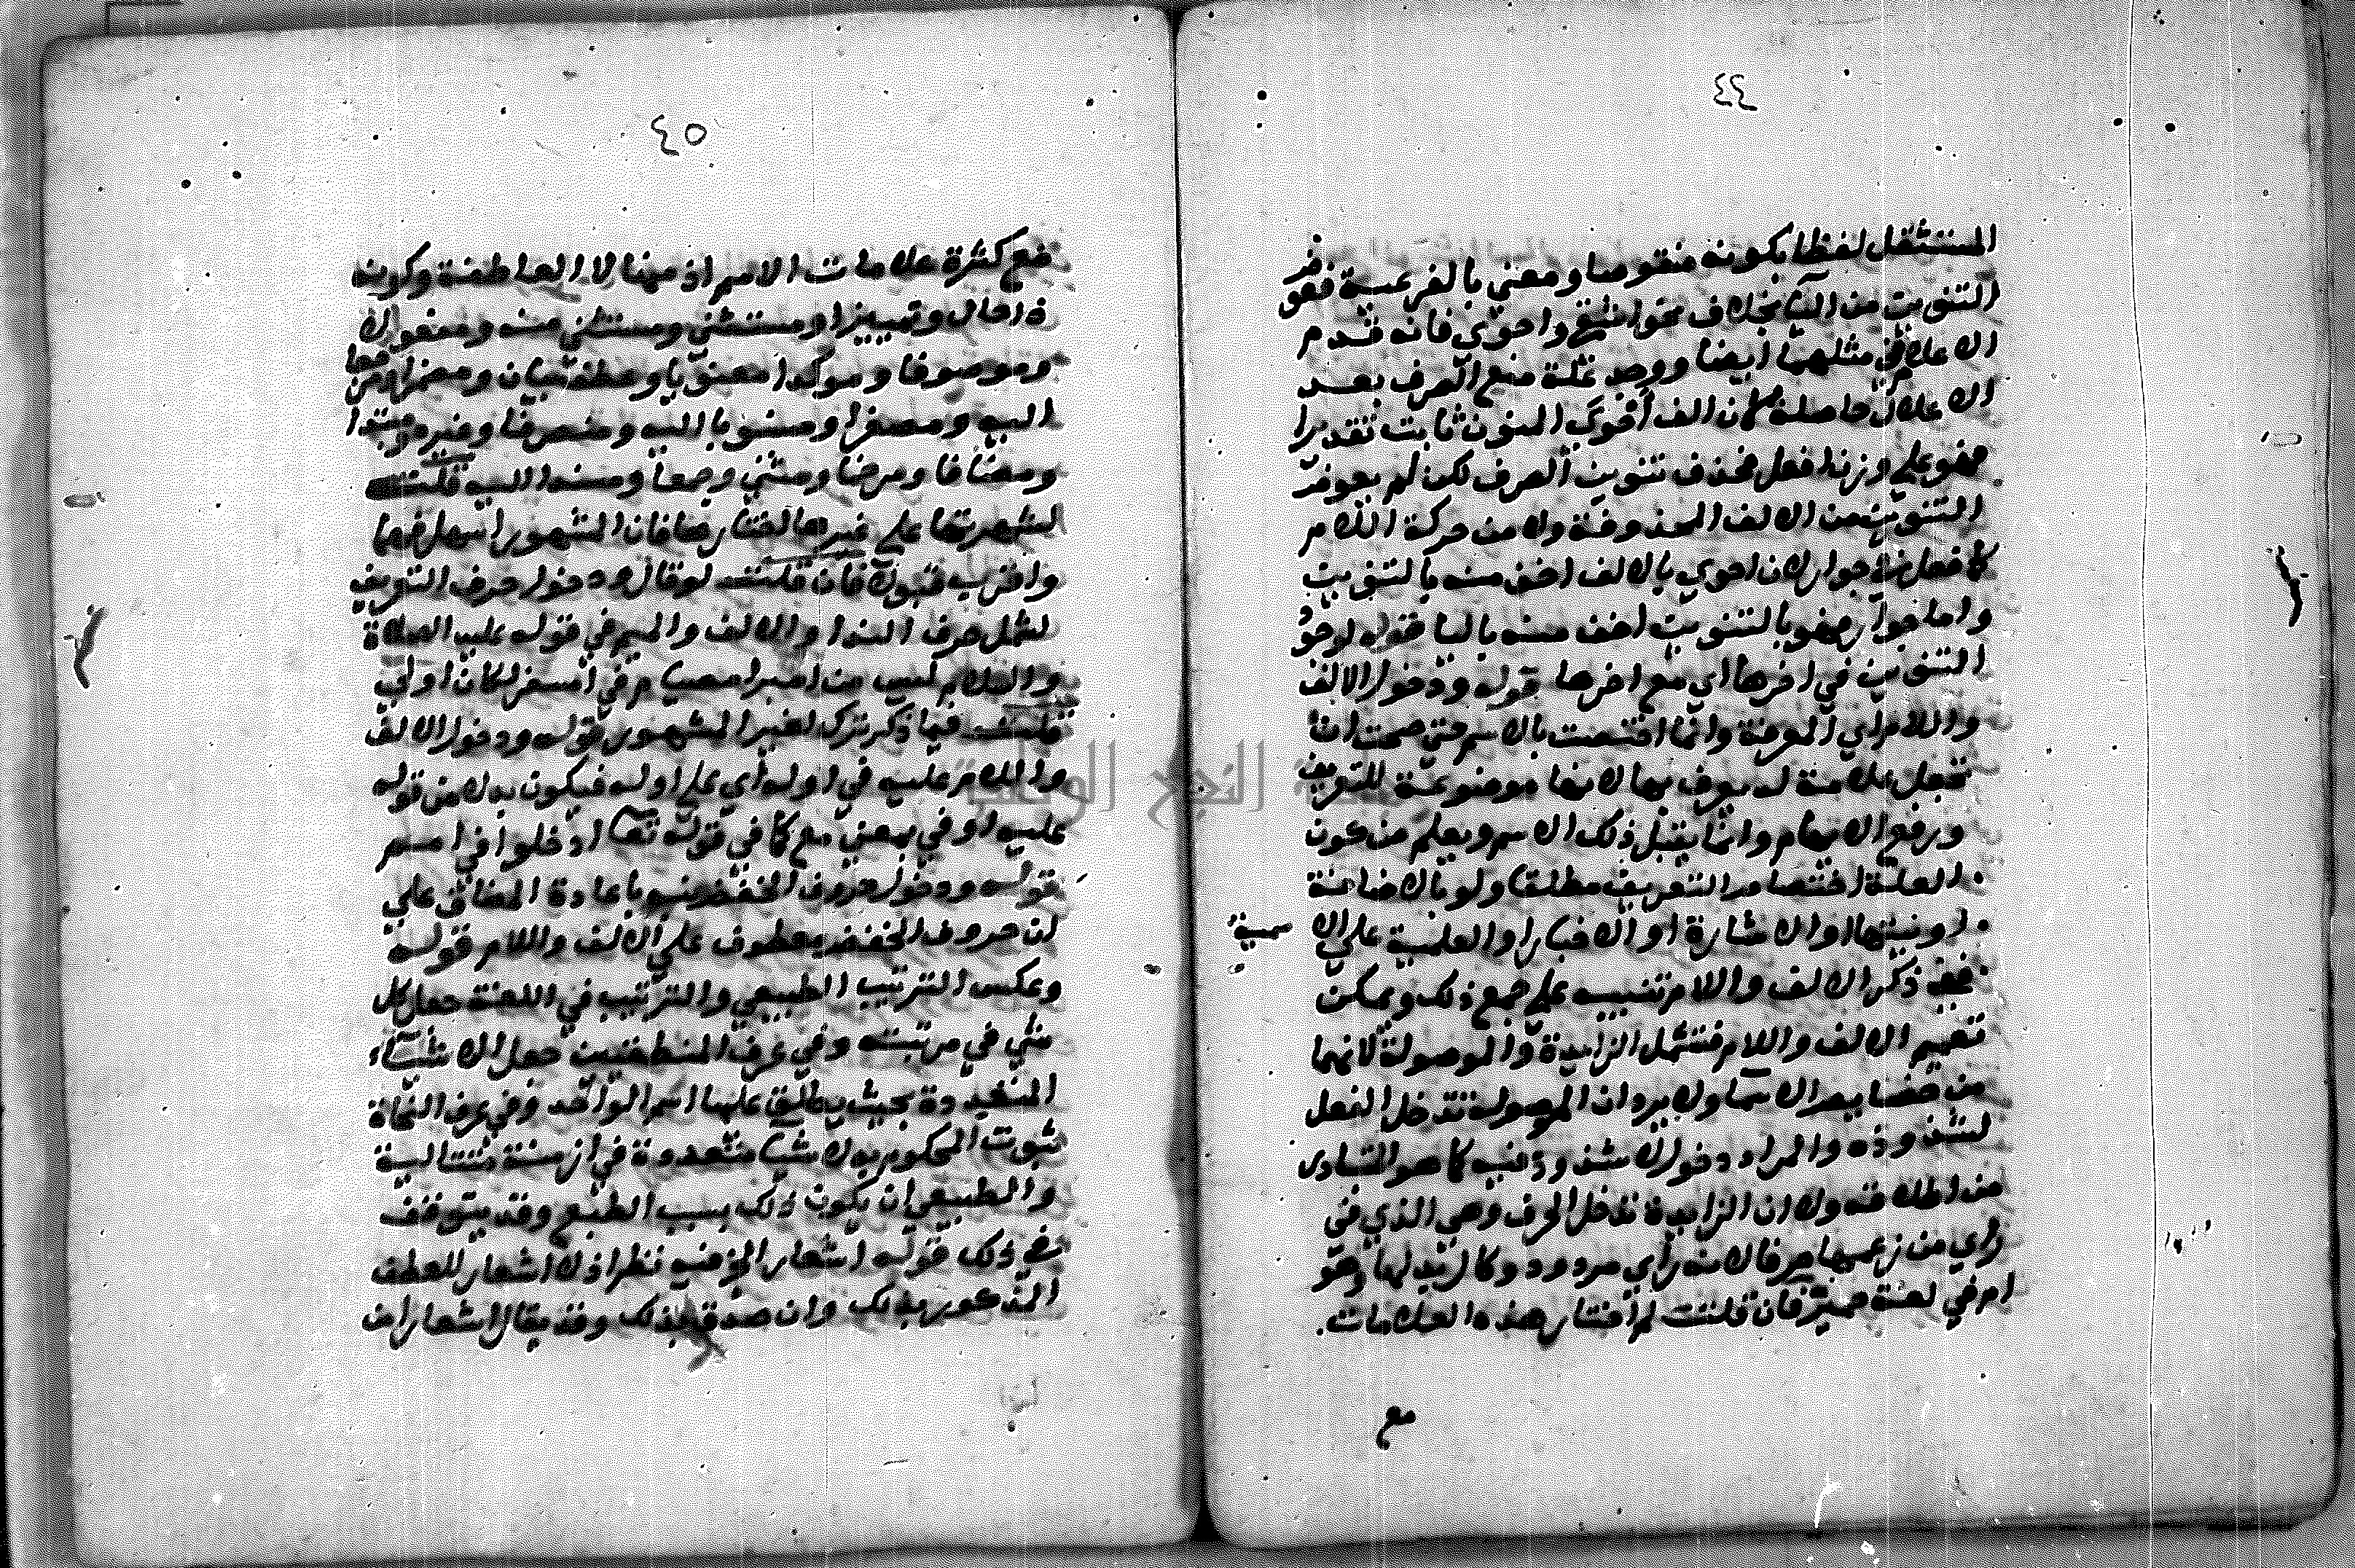 ٤٤
المستثقل لفظا بكونه منقوصا ومعنى بالفرعية فعوض
التنوين من اليا بخلاف نحو اعشى واحوى فانه قدم
الاعلال في مثلهما ايضا ووجد علة منع الصرف بعد
الاعلال حاصلة لان الف احوى المنون ثابت تقديرا
فهو على وزن افعل فحذف تنوين الصرف لكن لم يعوض
التنوين من الالف المحذوفة ولا من حركة اللام
كما فعل في جوار لان احوى بالالف اخف منه بالتنوين
واما جوار فهو بالتنوين اخف منه باليا قوله لحوق
التنوين في اخرها اي مع اخرها قوله ودخول الالف
واللام اي المعرفة وانما اختصت بالاسم حتى صحت ان
تجعل علامة له يعرف بها لانها موضوعة للتعريف
ورفع الابهام وانما يقبل ذلك الاسم ويعلم من كون
العلة اختصاص التعريف مطلقا ولو بالاضافة
او نيتها او الاشارة او الاخبار او العلمية على الاسمية
ففي ذكر الالف واللام تنبيه على جمع ذلك ويمكن
تعميم الالف واللام فتشمل الزايدة والموصولة لانهما
من خصايص الاسما ولا يرد ان الموصولة تدخل الفعل
لشذوذه والمراد دخول لا شذوذ فيه كما هو المتبادر
من اطلاقه ولا ان الزايدة تدخل الحرف وهي الذي في
راي من زعمها حرفا لانه راي مردود وكالزيد لها وهو
ام في لغة حمير فان قلت لم اختار هذه العلامات
مع
٤٥
مع كثرة علامات الاسم اذ منها لا العاطفة وكونه
ذا حال وتمييزا ومستثنى ومستثنى منه ومفعولا
وموصوفا وموكدا معنويا وعطف بيان ومضمرا ومرخما
اليه ومصغرا ومنسوبا اليه ومنصرفا وغيره ومبتدا
ومضافا ومرخما ومثنى وجمعا ومسندا اليه قلت
لشهرتها على غيرها اختارها فان المشهور اسهل فهما
واقرب قبولا فان قلت لو قال ودخول حرف التعريف
لشمل حرف الندا والالف والميم في قوله عليه الصلاة
والسلام ليس من امبر امصيام في امسفر لكان اولى
قلت فيما ذكر ترك لغير المشهور قوله ودخول الالف
واللام عليه في اوله اي على اوله فيكون بدلا من قوله
عليه او في بمعنى مع كما في قوله تعالى ادخلوا في امم
قوله ودخول حروف الخفض فيه باعادة المضاف على
ان حروف الخفض معطوف على الالف واللام قوله
وعكس الترتيب الطبيعي والترتيب في اللغة جعل كل
شي في مرتبته وفي عرف المنطقيين جعل الاشياء
المتعددة بحيث يطلق عليها اسم الواحد وفي عرف النحاة
ثبوت المحكوم به لاشيا متعددة في ازمنة متتالية
والطبيعي ان يكون ذلك بسبب الطبع وقد يتوقف
في ذلك قوله اشعار الخ فيه نظر اذ لا اشعار للعطف
المذكور بذلك وان صدق بذلك وقد يقال اشعار ان